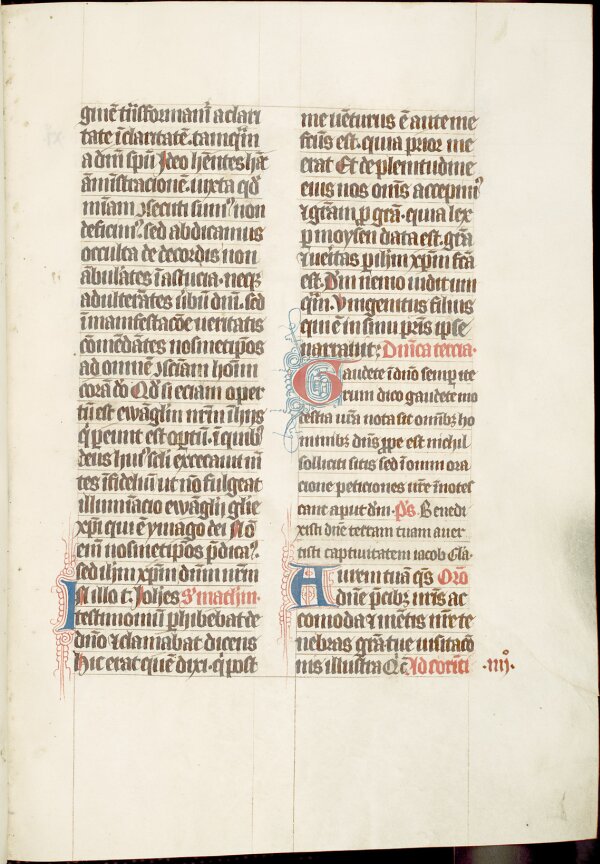 ginē trāsformam̄ a clari
tate ī claritatē. tamq̄m
a dn̄i spū Ideo hn̄tes hāc
āmīstracionē. iuxta qd̓
mīam ꝯsecuti sumꝰ non
deficimꝰ. sed abdicamus
occulta de decordis non
ābulātes ī astucia. neqꝫ
adulterātes ūbū dn̄i. sed
ī manifestacōe ueritatis
comēdātes nosmetip̄os
ad omnē ꝯsciam hoīm
corā dō Qd̓ si eciam oper
tū est ewāgliū nr̄m ī hys
q̄ pereunt est optū. ī quibꝫ
deus huiꝰ scl̄i excecauit mē
tes īfideliū ut nō fulgeat
illuminacio ewāglij glīe
xp̄i qui ē ymago dei Nō
em̄ nosmetip̄os p̄dicaꝰ.
sed ih̄m xp̄m dn̄m nr̄m
In illo t̄: Joh̄es S. mathm̄.
testimoniū phibebat de
dn̄o ⁊ clamabat dicens
hic erat quē dixi. q̄ post
me uēturus ē ante me
fc̄us est. quia prior me
erat Et de plenitudine
eius nos om̄s accepimꝰ
⁊ grām ꝓ grā. quia lex
ꝑ moysen data est. grā
⁊ ueritas ꝑ ih̄m xp̄m fc̄a
est. Dm̄ nemo uidit um
q̄m. Vnigenitus filius
qui ē in sinu pr̄is ip̄se
narrauit: Dn̄ica tercia.
Gaudete ī dn̄o semꝑ ite
rum dico gaudete mo
destia ur̄a nota sit om̄ibꝫ ho
minibꝫ dn̄s ꝓpe est nichil
solliciti sitis sed ī omni ora
cione peticiones ur̄e īnotes
cant aput dm̄. Ps̄. Benedi
xisti dn̄e terram tuam auer
tisti captiuitatem iacob Gla.
Aurem tuā qs̄ Orō
dn̄e p̄cibꝫ nr̄is ac
comoda ⁊ mētis nr̄e te
nebras grā tue uisitacō
nis illustra Q̄ Ad corīti .iiijº.